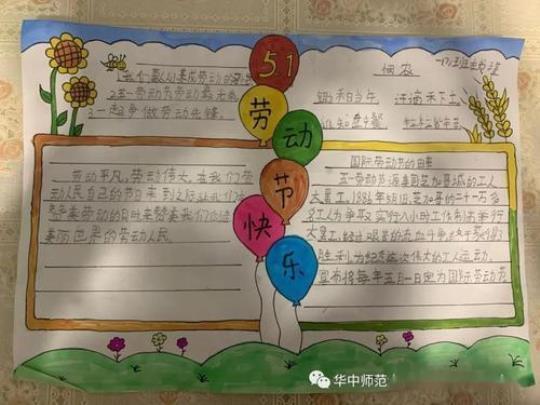 51
劳
动
节
快
乐
1.我们要从小养成劳动的
2.五一劳动节劳动最光荣
3.一起争做劳动先锋。
悯农
锄禾日当午
汗滴禾下土
谁知盘中餐
粒粒皆辛苦
劳动平凡,劳动伟大,在我们劳
动人民自己的节日来到之际让我们
美劳动的日时来赞美我们
美丽 的劳动人民
国际劳动节的由来
五一劳动节源美国芝加哥城的工人
大罢工,1886年5月1日,芝加哥的二十一万多
名工人为争取实行八小时工作制而举行
大罢工,经过艰苦的流血斗争,终于获得了
胜利,为纪念这次伟大的工人运动,
宣布将每年五月一日定为国际劳动节
华中师范